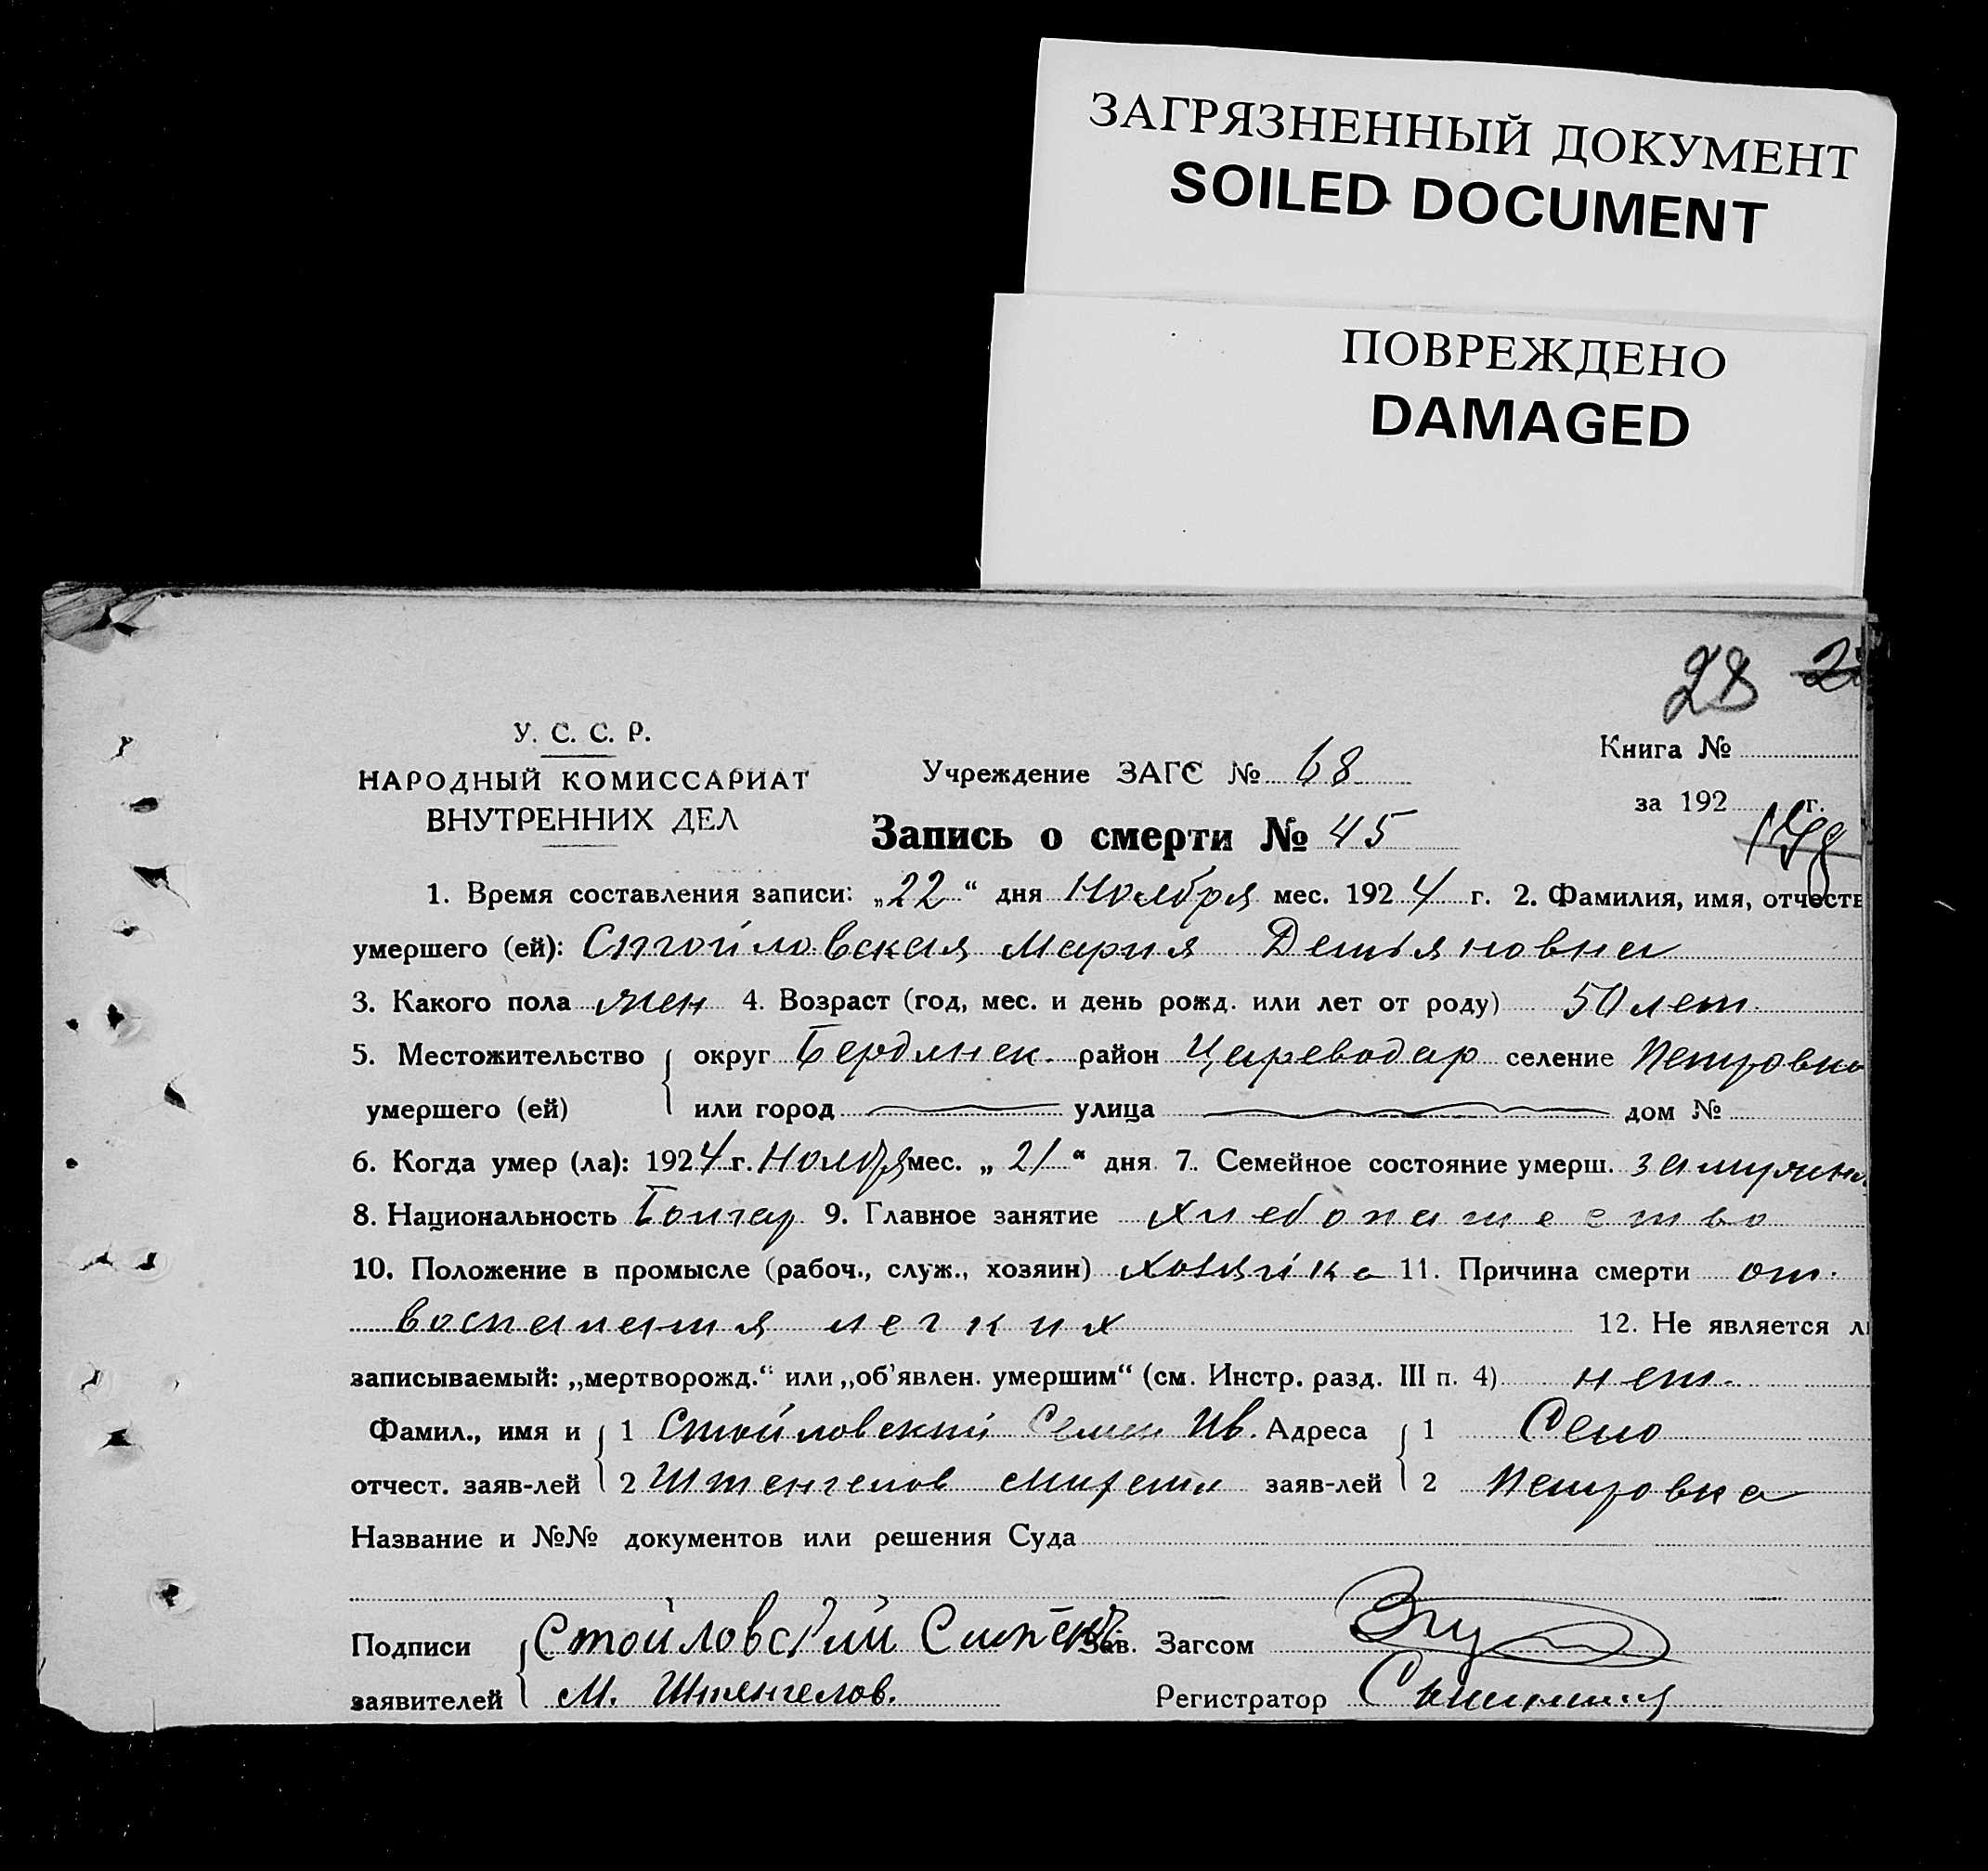 ЗАГРЯЗНЕННЫЙ ДОКУМЕНТ
SOILED DOCUMENT
ПОВРЕЖДЕНО
DAMAGED
28
У. С. С. Р.
НАРОДНЫЙ КОМИССАРИАТ
ВНУТРЕННИХ ДЕЛ
Учреждение ЗАГС № 68
Книга №
за 192 г.
Запись о смерти № 45
1. Время составления записи: „22“ дня Ноября мес. 1924 г. 2. Фамилия, имя, отчеств
умершего (ей): Стойловская Мария Дештяновна
3. Какого пола жен 4. Возраст (год, мес. и день рожд. или лет от роду) 50 лет.
5. Местожительство округ Бердянск. район Цареводар селение Петровка
умершего (ей) или город улица дом №
6. Когда умер (ла): 1924 г. Ноября мес. „21“ дня 7. Семейное состояние умерш. замужня
8. Национальность Болгар. 9. Главное занятие хлебопашество
10. Положение в промысле (рабоч., служ., хозяин) хозяйка 11. Причина смерти от.
воспаления легких 12. Не является л
записываемый: „мертворожд.“ или „об'явлен. умершим“ (см. Инстр. разд. III п. 4) нет.
Фамил., имя и 1 Стойловский Семен Ив. Адреса 1 Село
отчест. заяв-лей 2 Штенгелов заяв-лей 2 Петровка
Название и №№ документов или решения Суда
Подписи Стойловский Зав. Загсом
заявителей М. Штенгелов. Регистратор